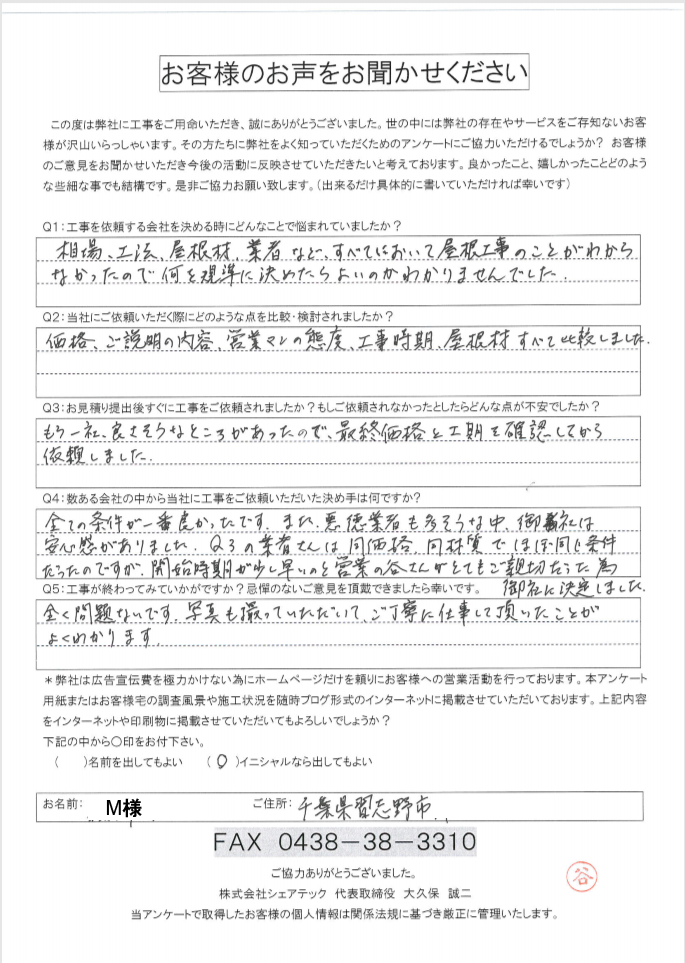 お客様のお声をお聞かせください
この度は弊社に工事をご用命いただき、誠にありがとうございました。世の中には弊社の存在やサービスをご存知ないお客
様が沢山いらっしゃいます。その方たちに弊社をよく知っていただくためのアンケートにご協力いただけるでしょうか？ お客様
のご意見をお聞かせいただき今後の活動に反映させていただきたいと考えております。良かったこと、嬉しかったことどのよう
な些細な事でも結構です。是非ご協力お願い致します。（出来るだけ具体的に書いていただければ幸いです）
Q1：工事を依頼する会社を決める時にどんなことで悩まれていましたか？
相場、工法、屋根材、業者など、すべてにおいて屋根工事のことがわから
なかったので何を規準に決めたらよいのかわかりませんでした。
Q2：当社にご依頼いただく際にどのような点を比較・検討されましたか？
価格、ご説明の内容、営業マンの態度、工事時期、屋根材すべて比較しました。
Q3：お見積り提出後すぐに工事をご依頼されましたか？もしご依頼されなかったとしたらどんな点が不安でしたか？
もう一社、良さそうなところがあったので、最終価格と工期を確認してから
依頼しました。
Q4：数ある会社の中から当社に工事をご依頼いただいた決め手は何ですか？
全ての条件が一番良かったです。また、悪徳業者も多そうな中、御社は
安心感がありました。Q3の業者さんは同価格、同材質でほぼ同じ条件
だったのですが、開始時期が少し早いのと営業の谷さんがとてもご親切だった為
御社に決定しました。
Q5：工事が終わってみていかがですか？忌憚のないご意見を頂戴できましたら幸いです。
全く問題ないです。写真も撮っていただいて、ご丁寧に仕事して頂いたことが
よくわかります。
＊弊社は広告宣伝費を極力かけない為にホームページだけを頼りにお客様への営業活動を行っております。本アンケート
用紙またはお客様宅の調査風景や施工状況を随時ブログ形式のインターネットに掲載させていただいております。上記内容
をインターネットや印刷物に掲載させていただいてもよろしいでしょうか？
下記の中から○印をお付下さい。
（　　）名前を出してもよい　（ ○ ）イニシャルなら出してもよい
お名前： M様 ご住所： 千葉県習志野市
FAX 0438－38－3310
ご協力ありがとうございました。
谷
株式会社シェアテック 代表取締役 大久保 誠二
当アンケートで取得したお客様の個人情報は関係法規に基づき厳正に管理いたします。